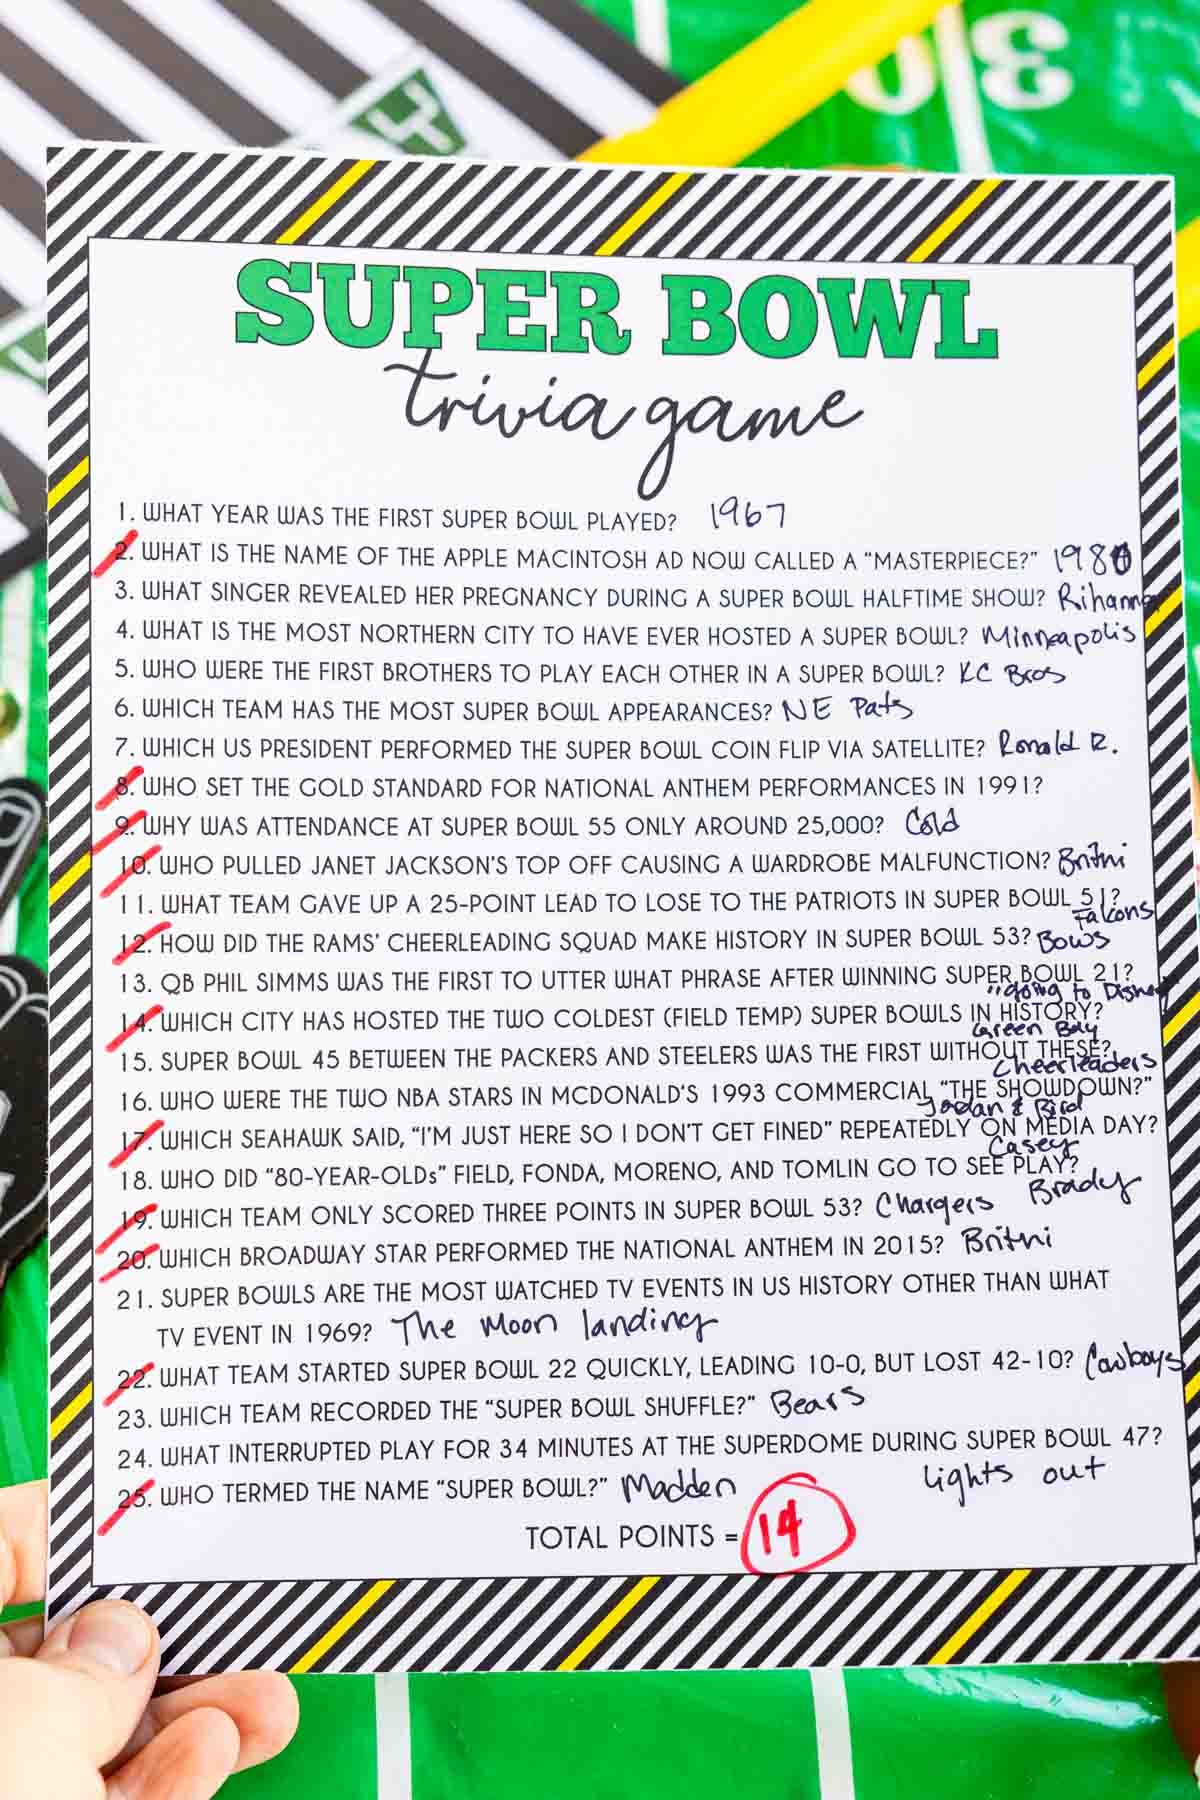 SUPER BOWL
trivia game
1. WHAT YEAR WAS THE FIRST SUPER BOWL PLAYED? 1967
2. WHAT IS THE NAME OF THE APPLE MACINTOSH AD NOW CALLED A “MASTERPIECE?” 1980
3. WHAT SINGER REVEALED HER PREGNANCY DURING A SUPER BOWL HALFTIME SHOW? Rihanna
4. WHAT IS THE MOST NORTHERN CITY TO HAVE EVER HOSTED A SUPER BOWL? Minneapolis
5. WHO WERE THE FIRST BROTHERS TO PLAY EACH OTHER IN A SUPER BOWL? KC Bros
6. WHICH TEAM HAS THE MOST SUPER BOWL APPEARANCES? NE Pats
7. WHICH US PRESIDENT PERFORMED THE SUPER BOWL COIN FLIP VIA SATELLITE? Ronald R.
8. WHO SET THE GOLD STANDARD FOR NATIONAL ANTHEM PERFORMANCES IN 1991?
9. WHY WAS ATTENDANCE AT SUPER BOWL 55 ONLY AROUND 25,000? Cold
10. WHO PULLED JANET JACKSON'S TOP OFF CAUSING A WARDROBE MALFUNCTION? Britni
11. WHAT TEAM GAVE UP A 25-POINT LEAD TO LOSE TO THE PATRIOTS IN SUPER BOWL 51?
Falcons
12. HOW DID THE RAMS' CHEERLEADING SQUAD MAKE HISTORY IN SUPER BOWL 53? Bows
13. QB PHIL SIMMS WAS THE FIRST TO UTTER WHAT PHRASE AFTER WINNING SUPER BOWL 21?
"going to Disney
14. WHICH CITY HAS HOSTED THE TWO COLDEST (FIELD TEMP) SUPER BOWLS IN HISTORY?
Green Bay
15. SUPER BOWL 45 BETWEEN THE PACKERS AND STEELERS WAS THE FIRST WITHOUT THESE?
Cheerleaders
16. WHO WERE THE TWO NBA STARS IN MCDONALD'S 1993 COMMERCIAL “THE SHOWDOWN?”
Jordan & Bird
17. WHICH SEAHAWK SAID, “I'M JUST HERE SO I DON'T GET FINED” REPEATEDLY ON MEDIA DAY?
Casey
18. WHO DID “80-YEAR-OLDs” FIELD, FONDA, MORENO, AND TOMLIN GO TO SEE PLAY?
Brady
19. WHICH TEAM ONLY SCORED THREE POINTS IN SUPER BOWL 53? Chargers
20. WHICH BROADWAY STAR PERFORMED THE NATIONAL ANTHEM IN 2015? Britni
21. SUPER BOWLS ARE THE MOST WATCHED TV EVENTS IN US HISTORY OTHER THAN WHAT
TV EVENT IN 1969? The Moon landing
22. WHAT TEAM STARTED SUPER BOWL 22 QUICKLY, LEADING 10-0, BUT LOST 42-10? Cowboys
23. WHICH TEAM RECORDED THE “SUPER BOWL SHUFFLE?” Bears
24. WHAT INTERRUPTED PLAY FOR 34 MINUTES AT THE SUPERDOME DURING SUPER BOWL 47?
lights out
25. WHO TERMED THE NAME “SUPER BOWL?” Madden
TOTAL POINTS = 14